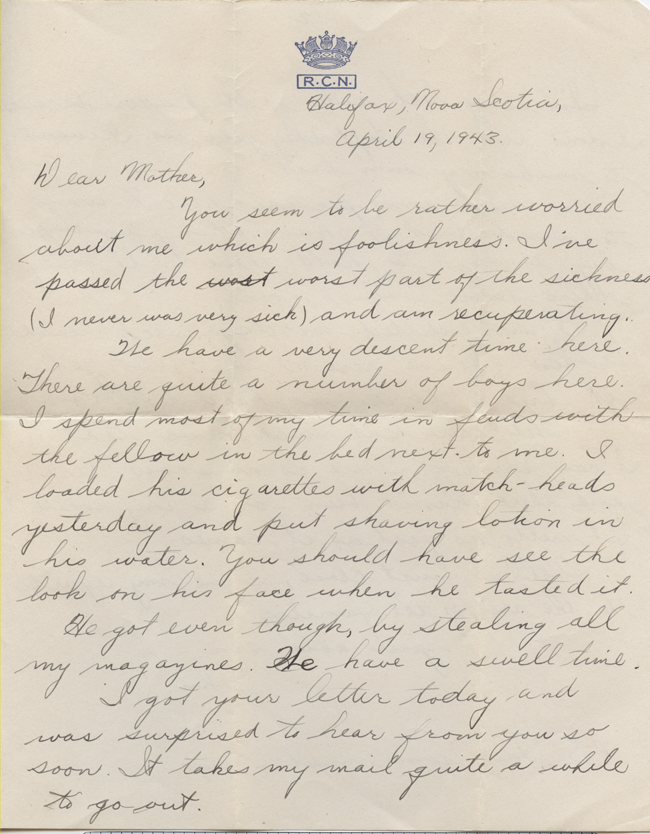 R.C.N.
Halifax, Nova Scotia,
April 19, 1943.
Dear Mother,
You seem to be rather worried
about me which is foolishness. I've
passed the worst worst part of the sickness
(I never was very sick) and am recuperating.
We have a very descent time here.
There are quite a number of boys here.
I spend most of my time in feuds with
the fellow in the bed next to me. I
loaded his cigarettes with match-heads
yesterday and put shaving lotion in
his water. You should have see the
look on his face when he tasted it.
He got even though, by stealing all
my magazines. We have a swell time.
I got your letter today and
was surprised to hear from you so
soon. It takes my mail quite a while
to go out.